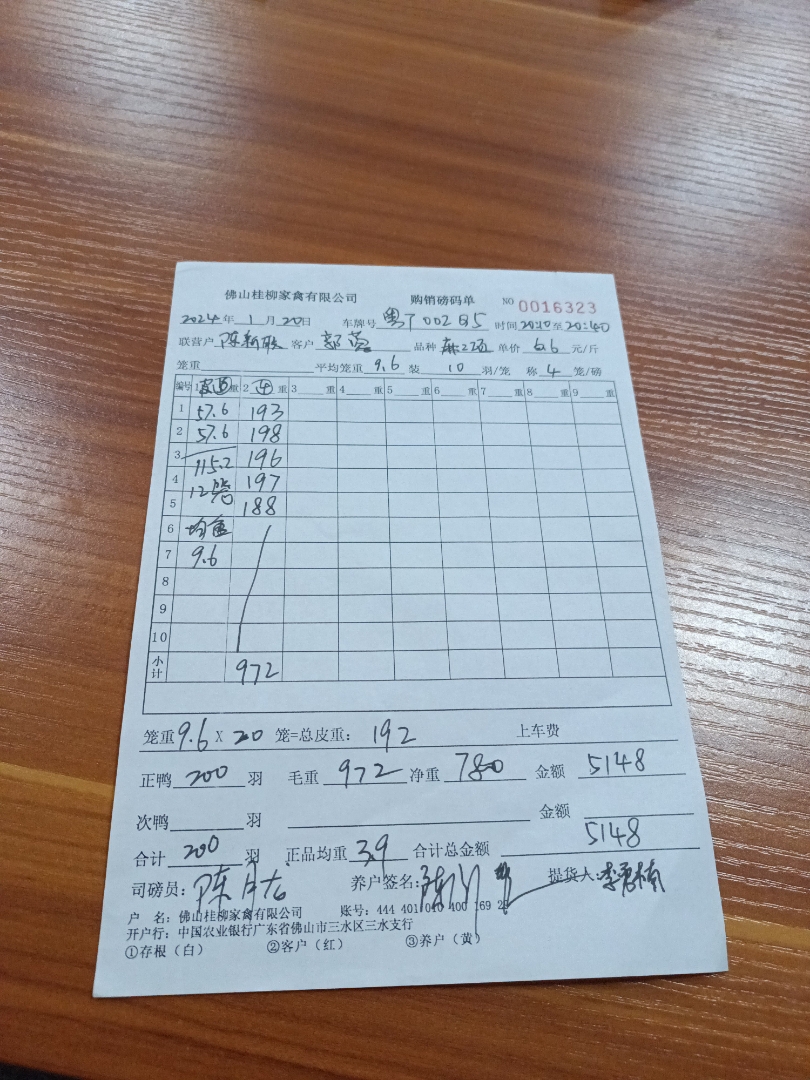 佛山桂柳家禽有限公司 购销磅码单 NO 0016323
2024年 1月 20日 车牌号 粤T00285 时间 20:10 至 20:40
联营户 陈新 客户 品种 麻2 单价 6.6 元/斤
笼重 平均笼重 9.6 装 10 羽/笼 称 4 笼/磅
编号 1 重 2 正 重 3 重 4 重 5 重 6 重 7 重 8 重 9 重
1 57.6 193
2 57.6 198
3 115.2 196
4 12 197
5 188
6 均重
7 9.6
8
9
10
小计 972
笼重 9.6 X 20 笼=总皮重: 192 上车费
正鸭 200 羽 毛重 972 净重 780 金额 5148
次鸭 羽 金额
合计 200 羽 正品均重 3.9 合计总金额 5148
司磅员: 陈月 养户签名: 陈 提货人: 李
户 名: 佛山桂柳家禽有限公司 账号: 444 401 010 400 169 2
开户行: 中国农业银行广东省佛山市三水区三水支行
①存根(白) ②客户(红) ③养户(黄)